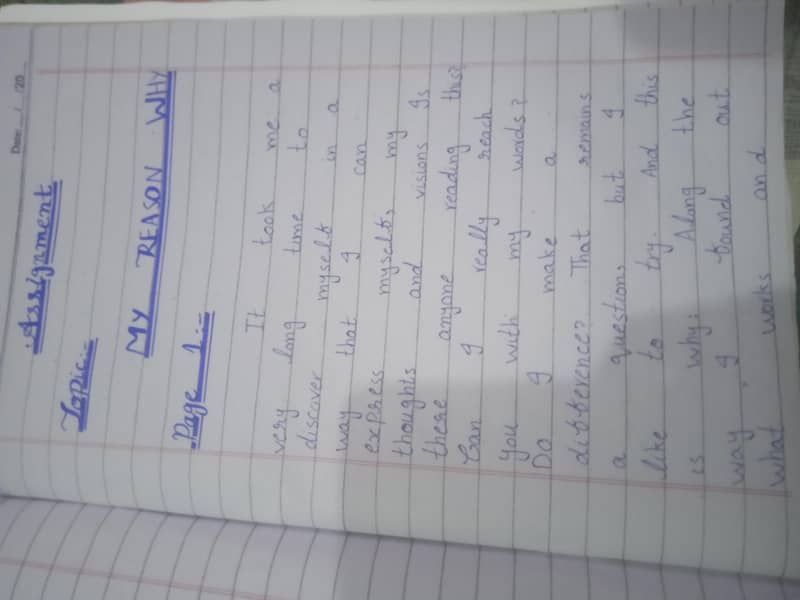 Date: / /20
Assignment
Topic:-
MY REASON WHY
Page 1:-
It took me a
very long time to
discover myself in a
way that I can
express myself, my
thoughts and visions Is
there anyone reading this?
Can I really reach
you with my words?
Do I make a
difference? That remains
a question, but I
like to try. And this
is why: Along the
way I found out
what works and